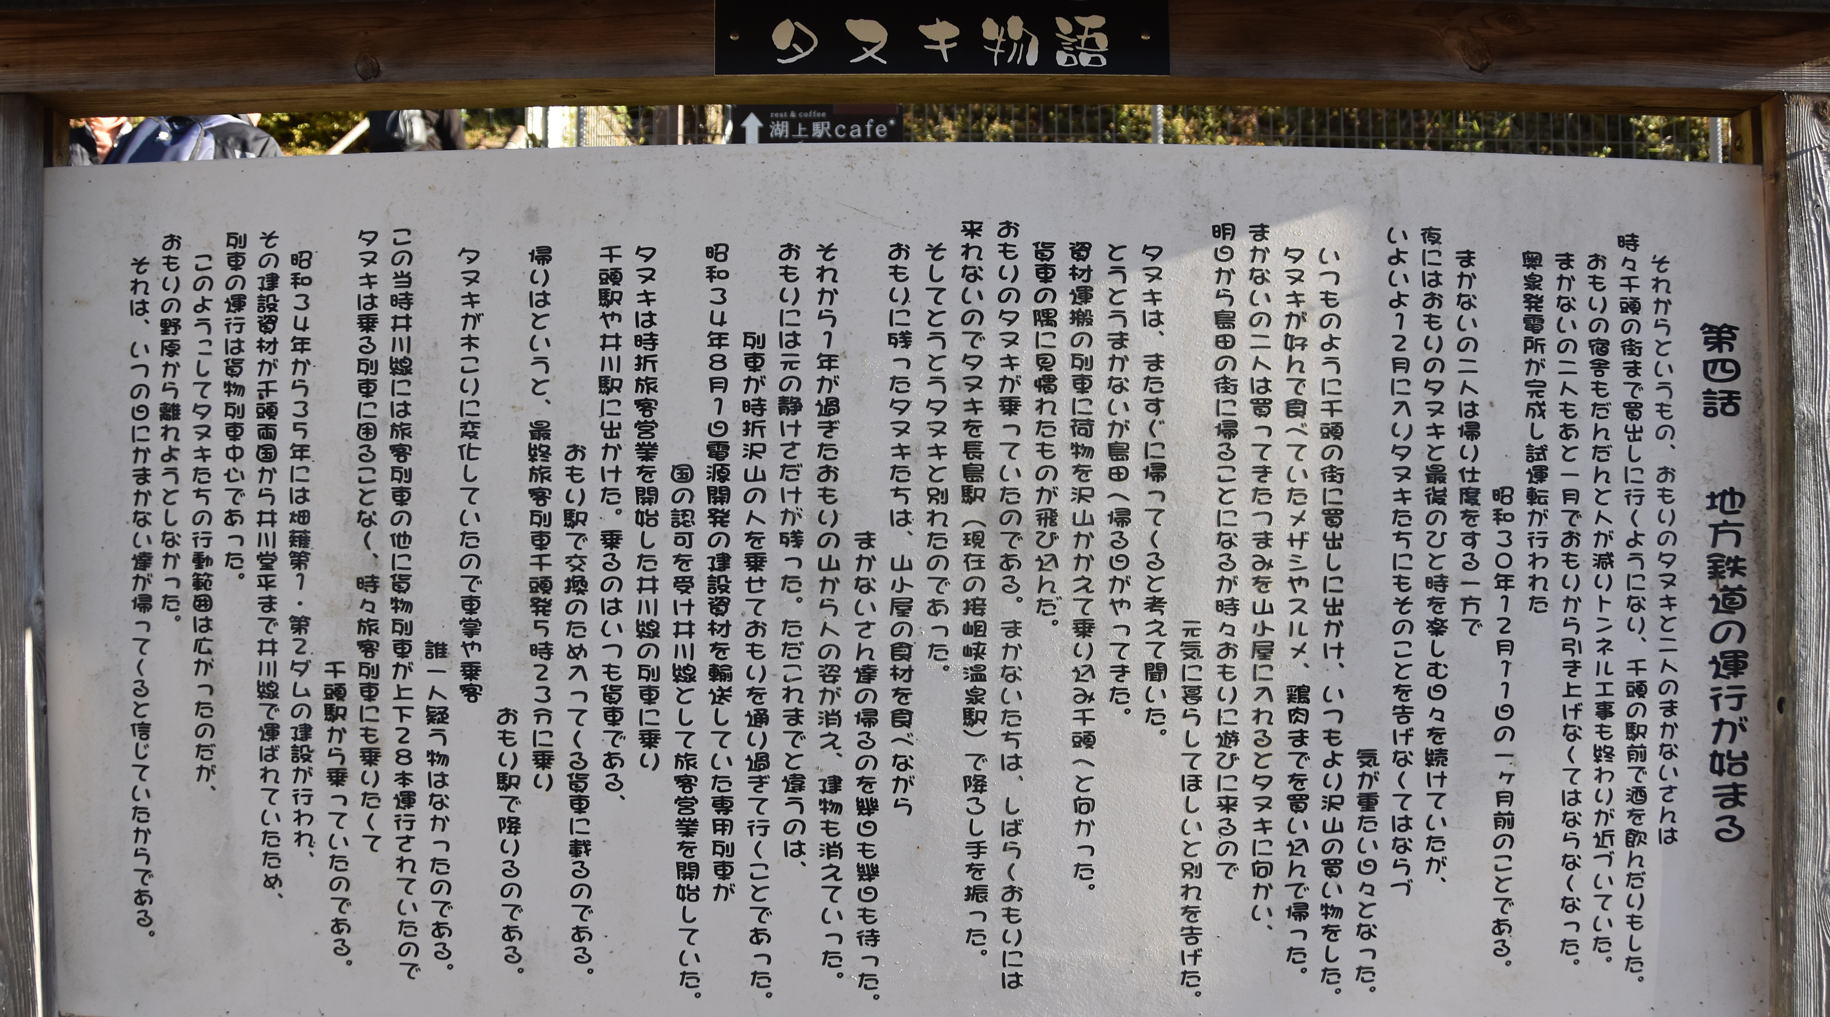 タヌキ物語
rest & coffee
湖上駅cafe
第四話 地方鉄道の運行が始まる
それからというもの、おもりのタヌキと二人のまかないさんは
時々千頭の街まで買出しに行くようになり、千頭の駅前で酒を飲んだりもした。
おもりの宿舎もだんだんと人が減りトンネル工事も終わりが近づいていた。
まかないの二人もあと一月でおもりから引き上げなくてはならなくなった。
奥泉発電所が完成し試運転が行われた
昭和30年12月11日の一ヶ月前のことである。
まかないの二人は帰り仕度をする一方で
夜にはおもりのタヌキと最後のひと時を楽しむ日々を続けていたが、
いよいよ12月に入りタヌキたちにもそのことを告げなくてはならづ
気が重たい日々となった。
いつものように千頭の街に買出しに出かけ、いつもより沢山の買い物をした。
タヌキが好んで食べていたメザシやスルメ、鶏肉までを買い込んで帰った。
まかないの二人は買ってきたつまみを山小屋に入れるとタヌキに向かい、
明日から島田の街に帰ることになるが時々おもりに遊びに来るので
元気に暮らしてほしいと別れを告げた。
タヌキは、またすぐに帰ってくると考えて聞いた。
とうとうまかないが島田へ帰る日がやってきた。
資材運搬の列車に荷物を沢山かかえて乗り込み千頭へと向かった。
貨車の隅に見慣れたものが飛び込んだ。
おもりのタヌキが乗っていたのである。まかないたちは、しばらくおもりには
来れないのでタヌキを長島駅（現在の接岨峡温泉駅）で降ろし手を振った。
そしてとうとうタヌキと別れたのであった。
おもりに残ったタヌキたちは、山小屋の食材を食べながら
まかないさん達の帰るのを幾日も幾日も待った。
それから1年が過ぎたおもりの山から人の姿が消え、建物も消えていった。
おもりには元の静けさだけが残った。ただこれまでと違うのは、
列車が時折沢山の人を乗せておもりを通り過ぎて行くことであった。
昭和34年8月1日電源開発の建設資材を輸送していた専用列車が
国の認可を受け井川線として旅客営業を開始していた。
タヌキは時折旅客営業を開始した井川線の列車に乗り
千頭駅や井川駅に出かけた。乗るのはいつも貨車である、
おもり駅で交換のため入ってくる貨車に載るのである。
帰りはというと、最終旅客列車千頭発5時23分に乗り
おもり駅で降りるのである。
タヌキが木こりに変化していたので車掌や乗客
誰一人疑う物はなかったのである。
この当時井川線には旅客列車の他に貨物列車が上下28本運行されていたので
タヌキは乗る列車に困ることなく、時々旅客列車にも乗りたくて
千頭駅から乗っていたのである。
昭和34年から35年には畑薙第1・第2ダムの建設が行われ、
その建設資材が千頭両国から井川堂平まで井川線で運ばれていたため、
列車の運行は貨物列車中心であった。
このようこしてタヌキたちの行動範囲は広がったのだが、
おもりの野原から離れようとしなかった。
それは、いつの日にかまかない達が帰ってくると信じていたからである。